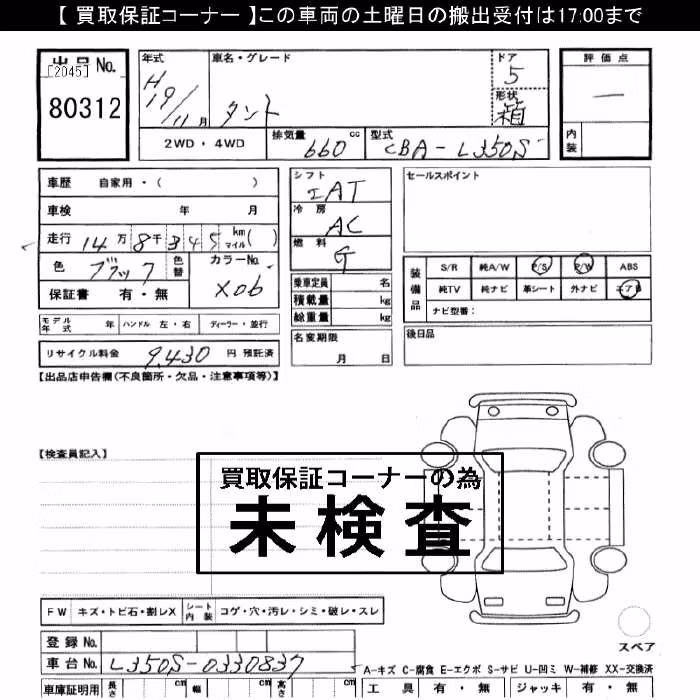 【 買取保証コーナー 】この車両の土曜日の搬出受付は17:00まで
出品No.
[2045]
80312
年式
H19/11月
車名・グレード
タント
ドア
5
形状
箱
評価点
―
内装
2WD・4WD
排気量 660 cc
型式 CBA-L350S
車歴 自家用・( )
車検 年 月
走行 14万8千345 km マイル( )
色 ブラック 色替
カラーNo. X06
保証書 有・無
シフト
IAT
冷房
AC
燃料
G
乗車定員 名
積載量 kg
総重量 kg
セールスポイント
装備品
S/R 純A/W P/S P/W ABS
純TV 純ナビ 革シート 外ナビ エアB
ナビ型番:
モデル年式 年 ハンドル 左・右 ディーラー・並行
名変期限
月 日
後日品
リサイクル料金 9,430 円 預託済
【出品店申告欄(不良箇所・欠品・注意事項等)】
【検査員記入】
買取保証コーナーの為
未検査
FW キズ・トビ石・割レX シート内装 コゲ・穴・汚レ・シミ・破レ・スレ
スペア
登録No.
車台No. L350S-0330837
A-キズ C-腐食 E-エクボ S-サビ U-凹ミ W-補修 XX-交換済
車庫証明用 長さ cm 幅 cm 高さ cm
工具 有・無 ジャッキ 有・無